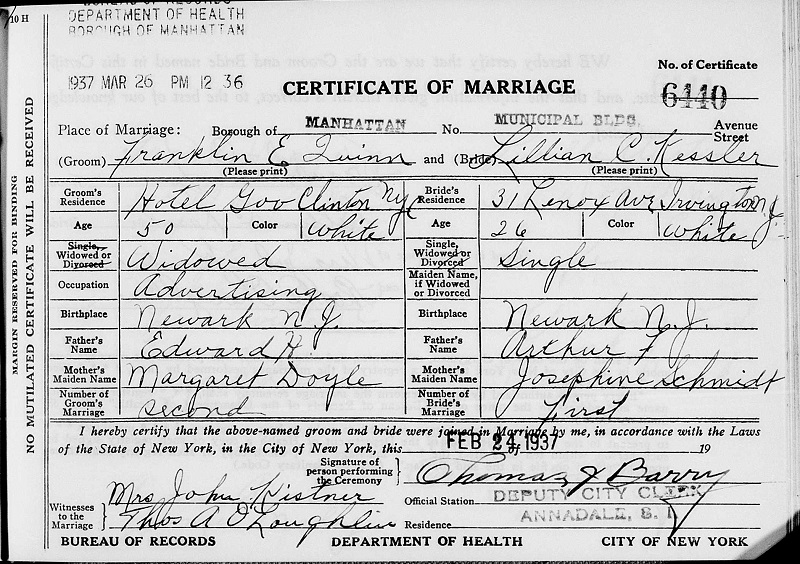 10 H
BUREAU OF RECORDS
DEPARTMENT OF HEALTH
BOROUGH OF MANHATTAN
1937 MAR 26 PM 12 36
No. of Certificate
6440
CERTIFICATE OF MARRIAGE
Place of Marriage: Borough of MANHATTAN No. MUNICIPAL BLDG. Avenue Street
(Groom) Franklin E Quinn and (Bride) Lillian C. Kessler
(Please print) (Please print)
Groom's Residence Hotel Gov Clinton NYC Bride's Residence 31 Lenox Ave Irvington N.J.
Age 50 Color White Age 26 Color White
Single, Widowed or Divorced Widowed Single, Widowed or Divorced Single
Occupation Advertising Maiden Name, if Widowed or Divorced
Birthplace Newark N.J. Birthplace Newark N.J.
Father's Name Edward H. Father's Name Arthur F
Mother's Maiden Name Margaret Doyle Mother's Maiden Name Josephine Schmidt
Number of Groom's Marriage Second Number of Bride's Marriage First
I hereby certify that the above-named groom and bride were joined in Marriage by me, in accordance with the Laws
of the State of New York, in the City of New York, this FEB 24 1937 of 19
Signature of person performing the Ceremony Thomas J Barry
Witnesses to the Marriage Mrs John Kistner
Thos A O'Loughlin
Official Station DEPUTY CITY CLERK
Residence ANNADALE, S. I.
BUREAU OF RECORDS DEPARTMENT OF HEALTH CITY OF NEW YORK
MARGIN RESERVED FOR BINDING
NO MUTILATED CERTIFICATE WILL BE RECEIVED